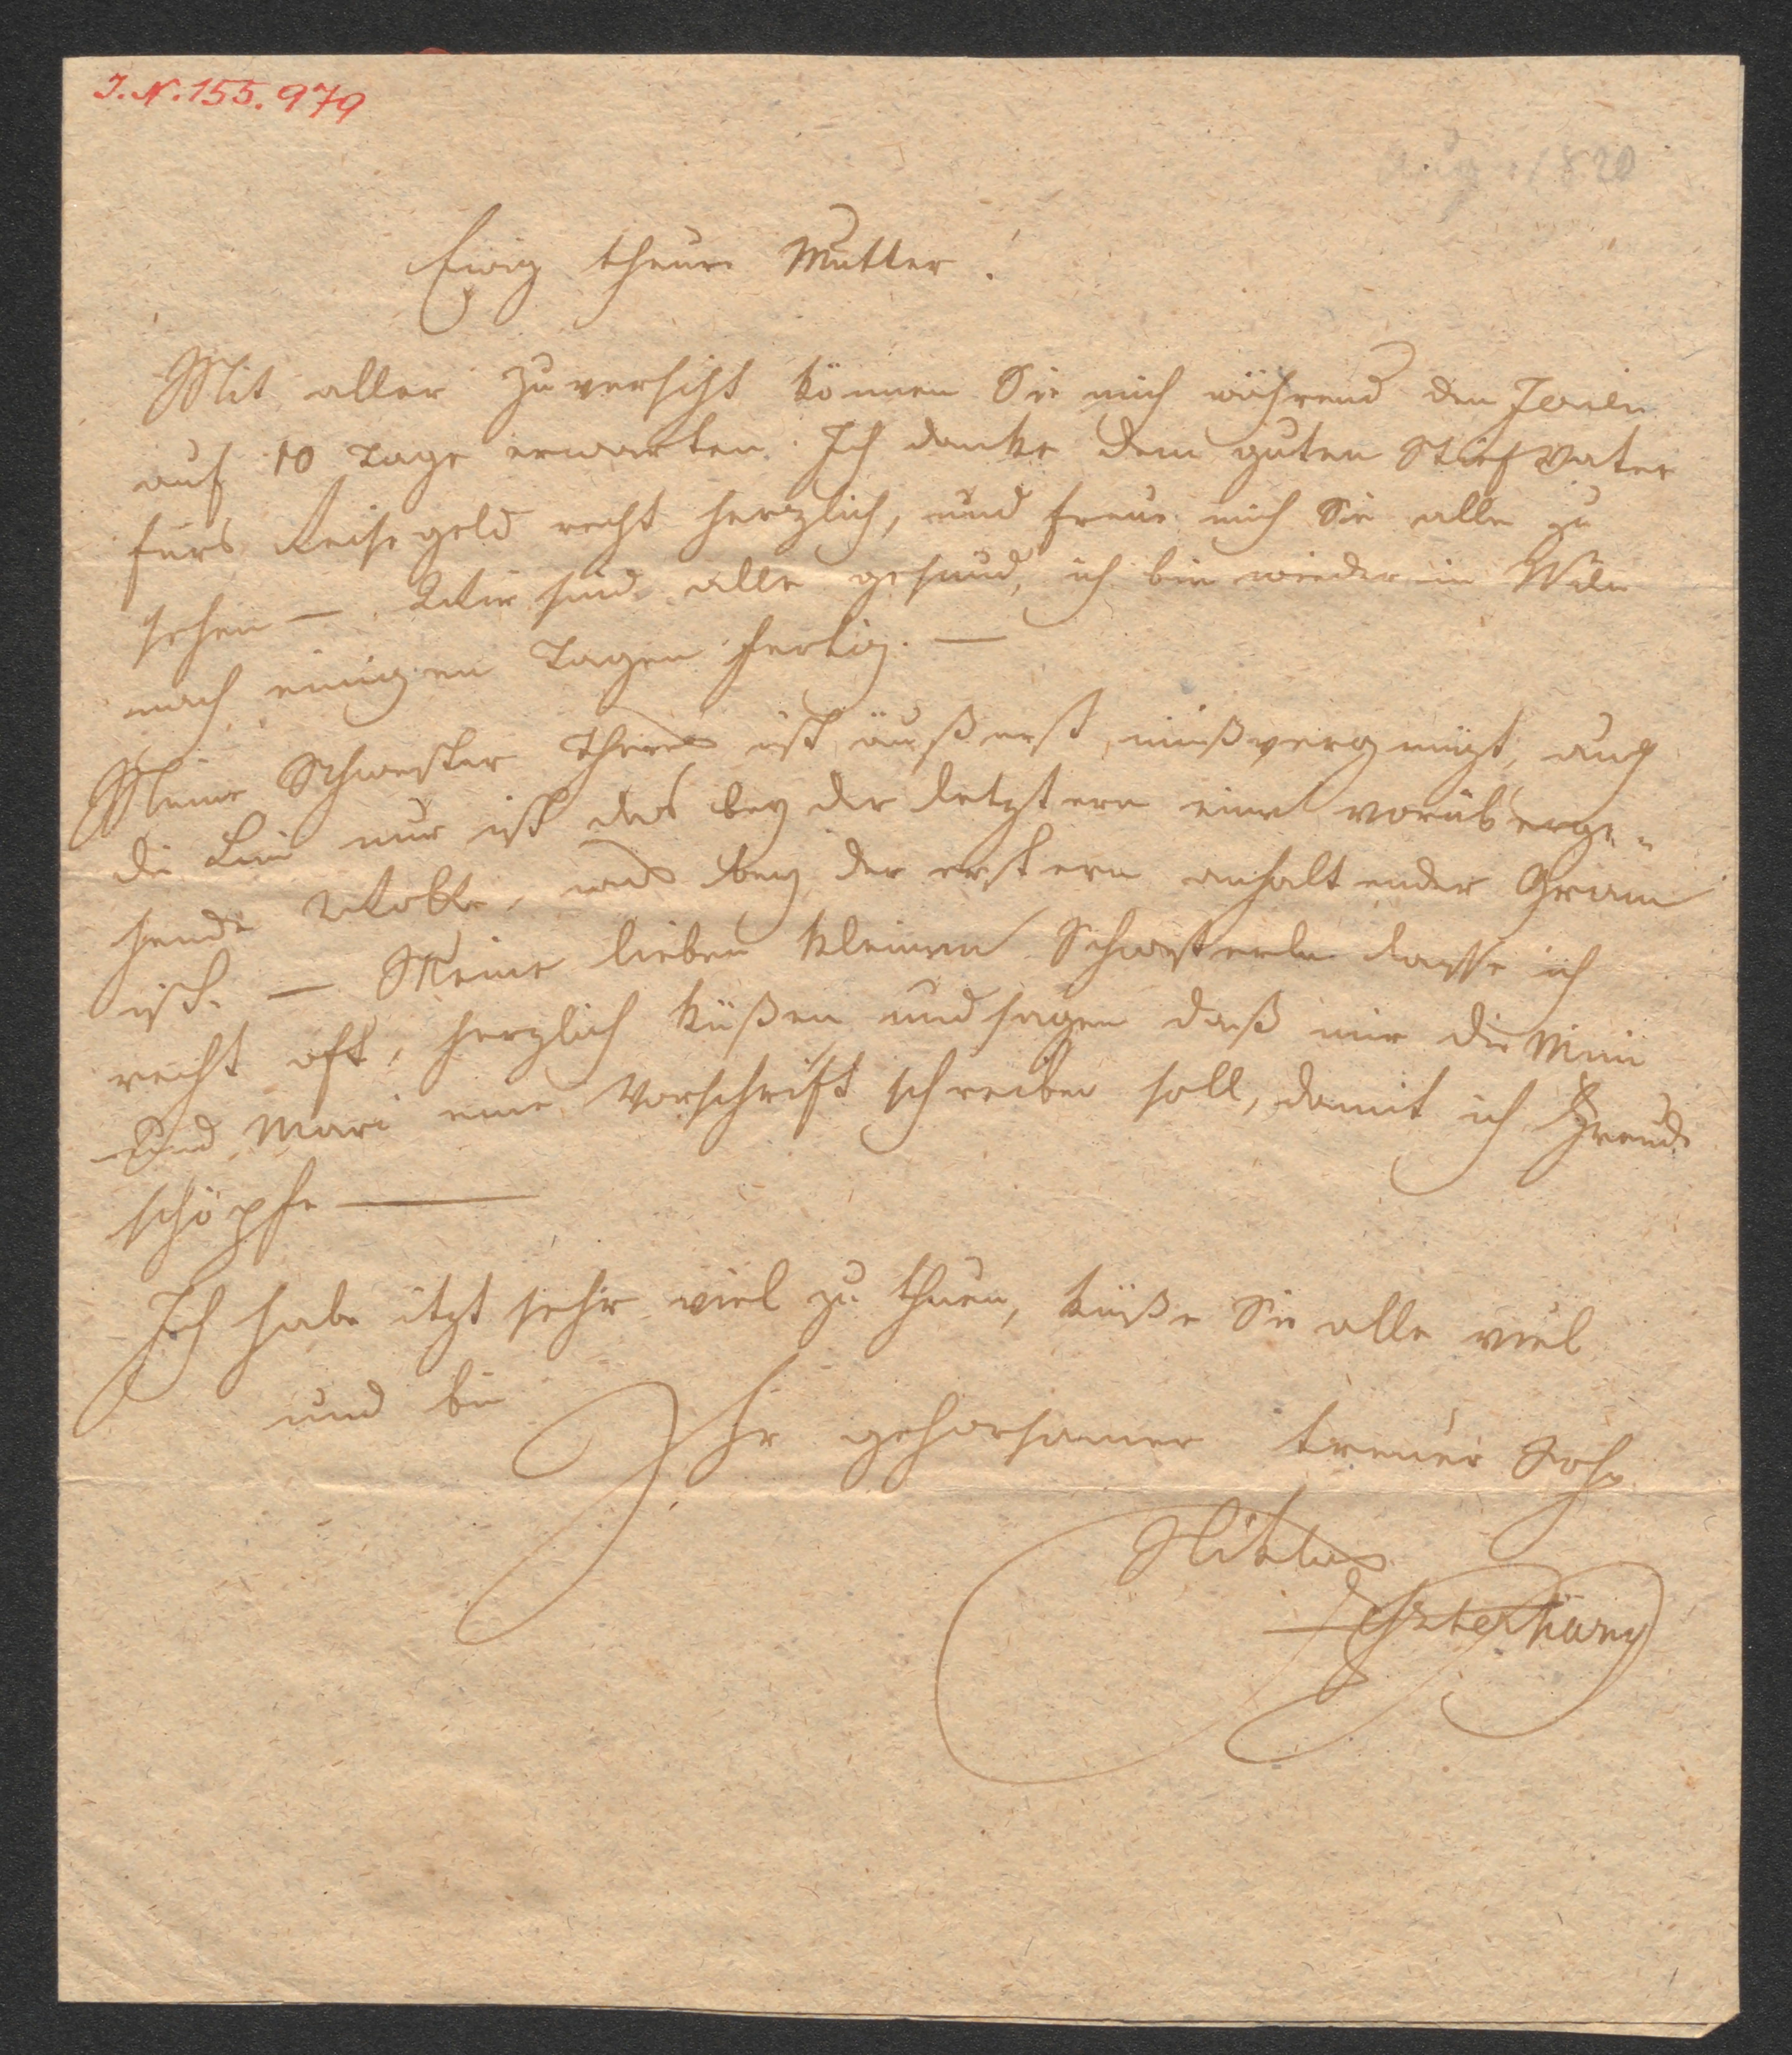 I. N. 155.979
Aug 1820
Ewig theure Mutter!
Mit aller Zuversicht können Sie mich während den Ferien
auf 10 Tage erwarten. Ich danke dem guten Stiefvater
fürs Reisegeld recht herzlich, und freue mich Sie alle zu
sehen — Wir sind alle gesund, ich bin wieder in
nach einigen Tagen fertig. —
Meine Schwester Theres ist äußerst mißvergnügt, auch
die nur ist das bey der letztern eine vorüberge-
hende Wolke, was bey der erstern anhaltender Gram
ist. — Meine lieben kleinen Schwesterln lasse ich
recht oft, herzlich küßen und sagen daß mir die Mini
und Mari eine Vorschrift schreiben soll, damit ich Freude
schöpfe —
Ich habe itzt sehr viel zu thuen, küße Sie alle viel
und bin
Ihr gehorsamer treuer Sohn
Niklas
Eszterhäzy